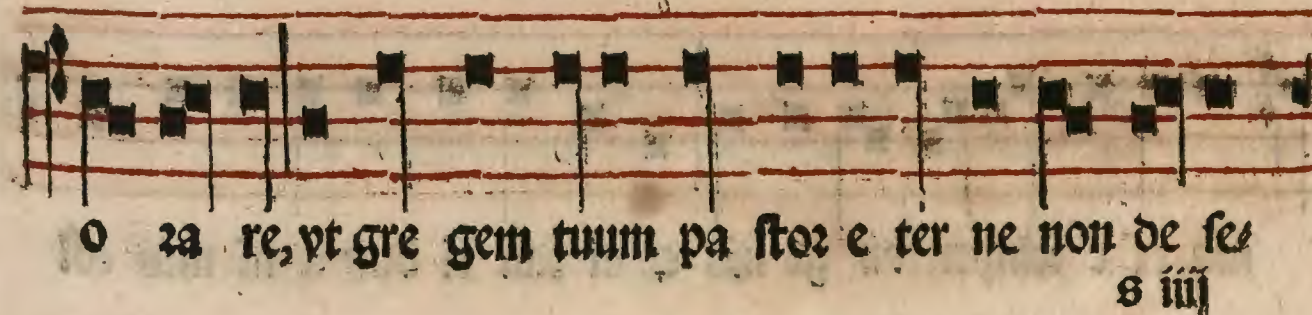 o ꝛa re, vt gre gem tuum pa ſtoꝛ e ter ne non de ſe⸗
s iiij